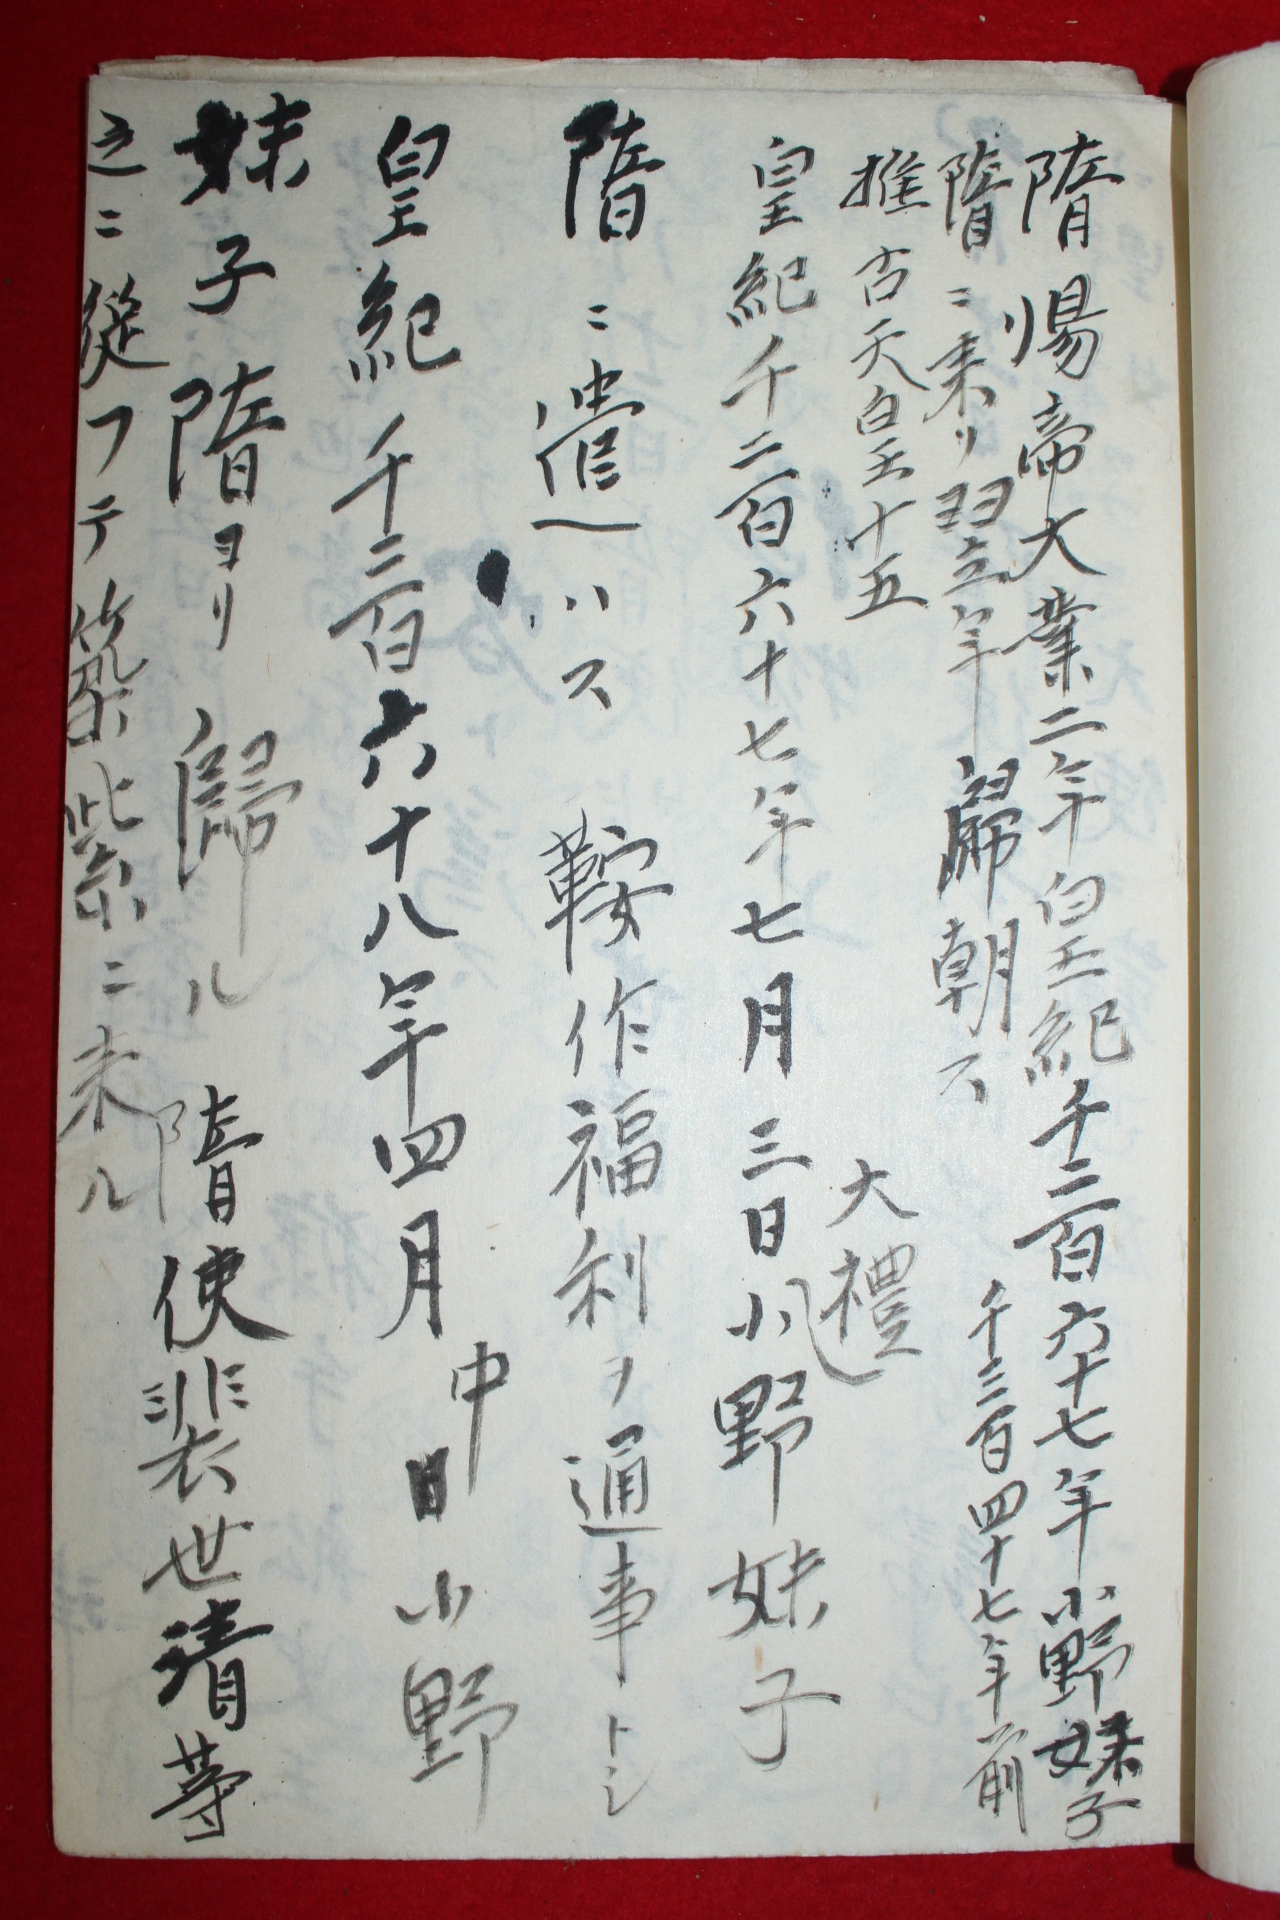 隋煬帝大業二年皇紀千二百六十七年小野妹子
隋ニ来リ翌年歸朝ス　千三百四十七年前
推古天皇十五
大禮
皇紀千二百六十七年七月三日小野妹子
隋ニ遣ハス　鞍作福利ヲ通事トシ
皇紀千二百六十八年四月中日小野
妹子隋ヨリ歸ル　隋使裴世清等
之ニ從フテ築紫ニ来ル